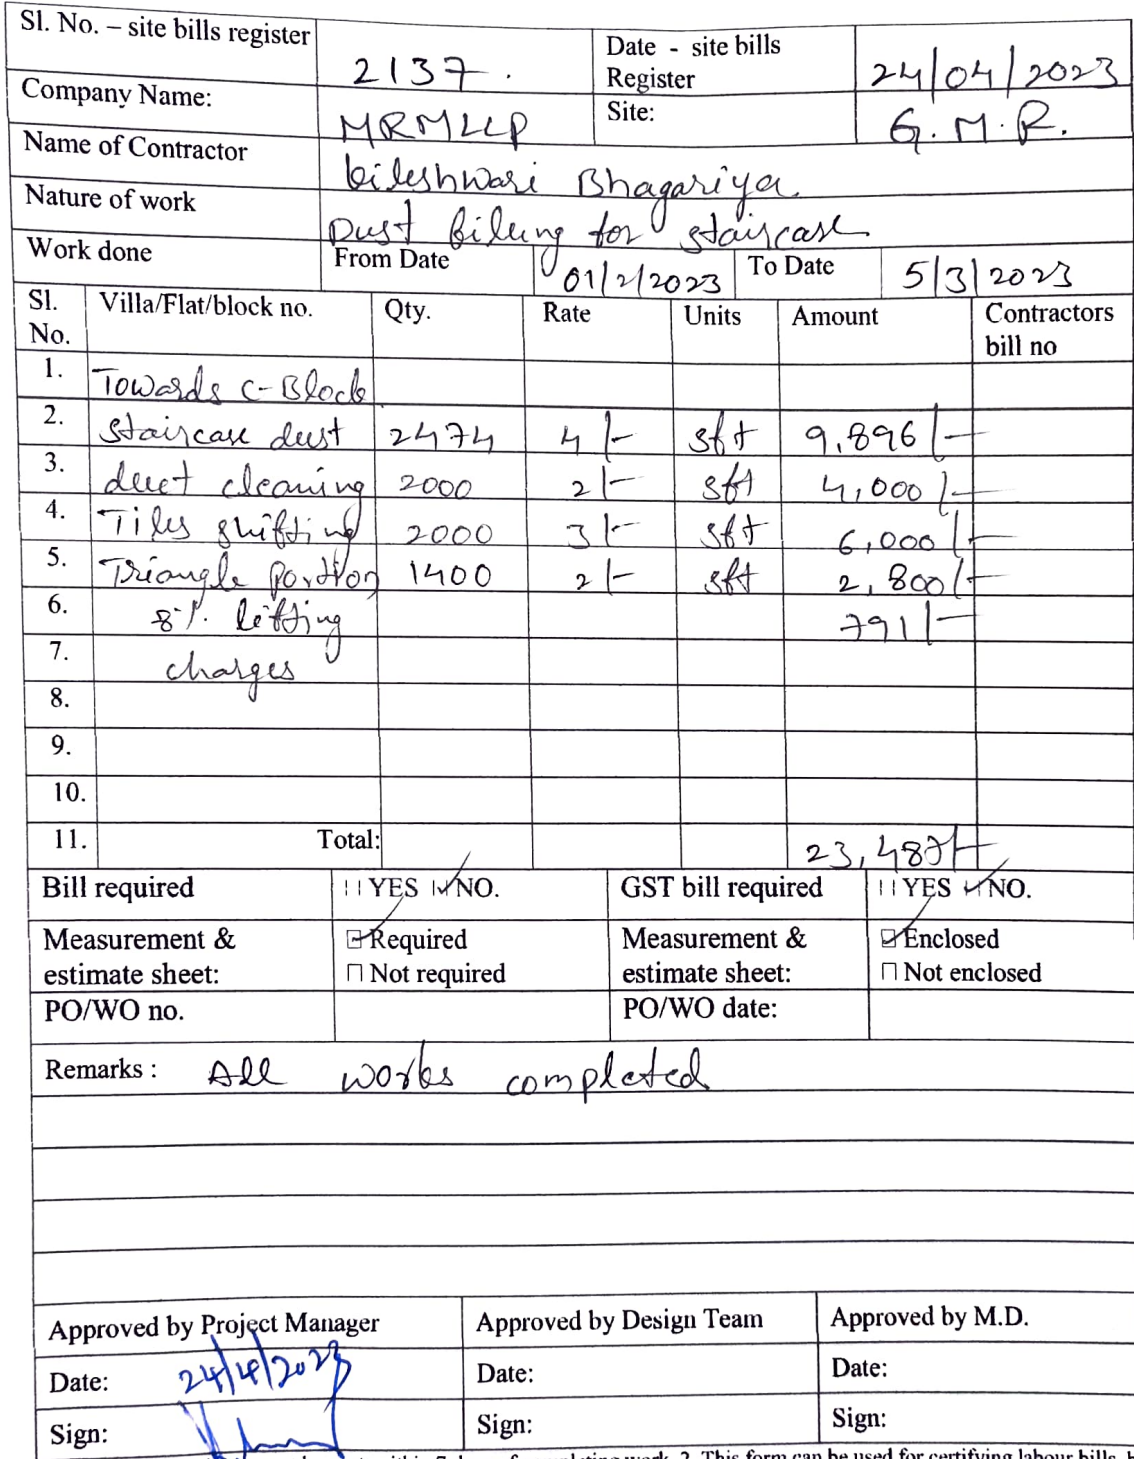 Sl. No. – site bills register 2137. Date - site bills Register 24/04/2023
Company Name: MRMLLP Site: G.M.R.
Name of Contractor bileshwari Bhagariya
Nature of work Dust filling for staircase
Work done From Date 01/2/2023 To Date 5/3/2023
Sl. No. Villa/Flat/block no. Qty. Rate Units Amount Contractors bill no
1. Towards C-Block
2. Staircase dust 2474 4/- sft 9,896/-
3. duct cleaning 2000 2/- sft 4,000/-
4. Tiles shifting 2000 3/- sft 6,000/-
5. Triangle portion 1400 2/- sft 2,800/-
6. 8%. lifting 791/-
7. charges
8.
9.
10.
11. Total: 23,487/-
Bill required YES NO. GST bill required YES NO.
Measurement & estimate sheet: Required Measurement & estimate sheet: Enclosed
Not required Not enclosed
PO/WO no. PO/WO date:
Remarks : All works completed
Approved by Project Manager Approved by Design Team Approved by M.D.
Date: 24/4/2023 Date: Date:
Sign: Sign: Sign:
within 7 days of completing work. 2. This form can be used for certifying labour bills,